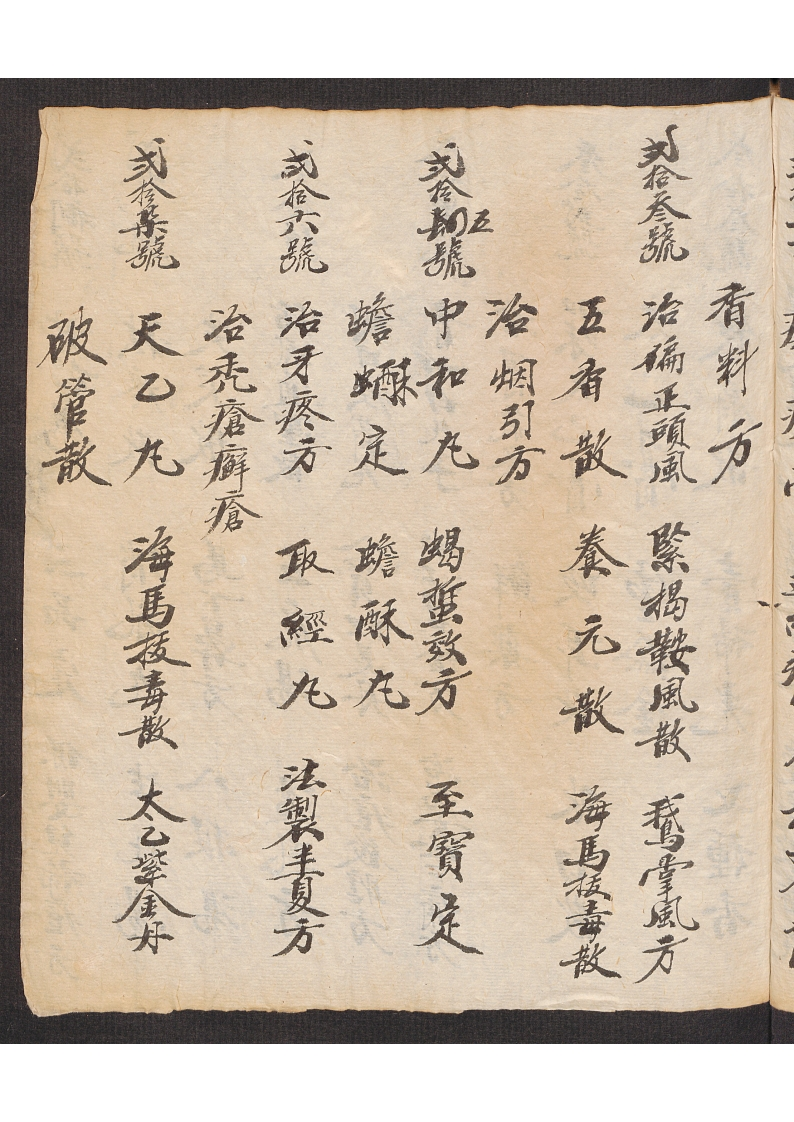 香料方
弍拾叁號 治偏正頭風 緊楬鞍風散 鵞掌風方
五香散 養元散 海馬拔毒散
治烟引方
弍拾五號 中和丸 蝎蜇效方 至寶定
蟾酥定 蟾酥丸
弍拾六號 治牙疼方 取經丸 法製半夏方
治禿瘡癬瘡
弍拾柒號 天乙丸 海馬拔毒散 太乙紫金丹
破管散